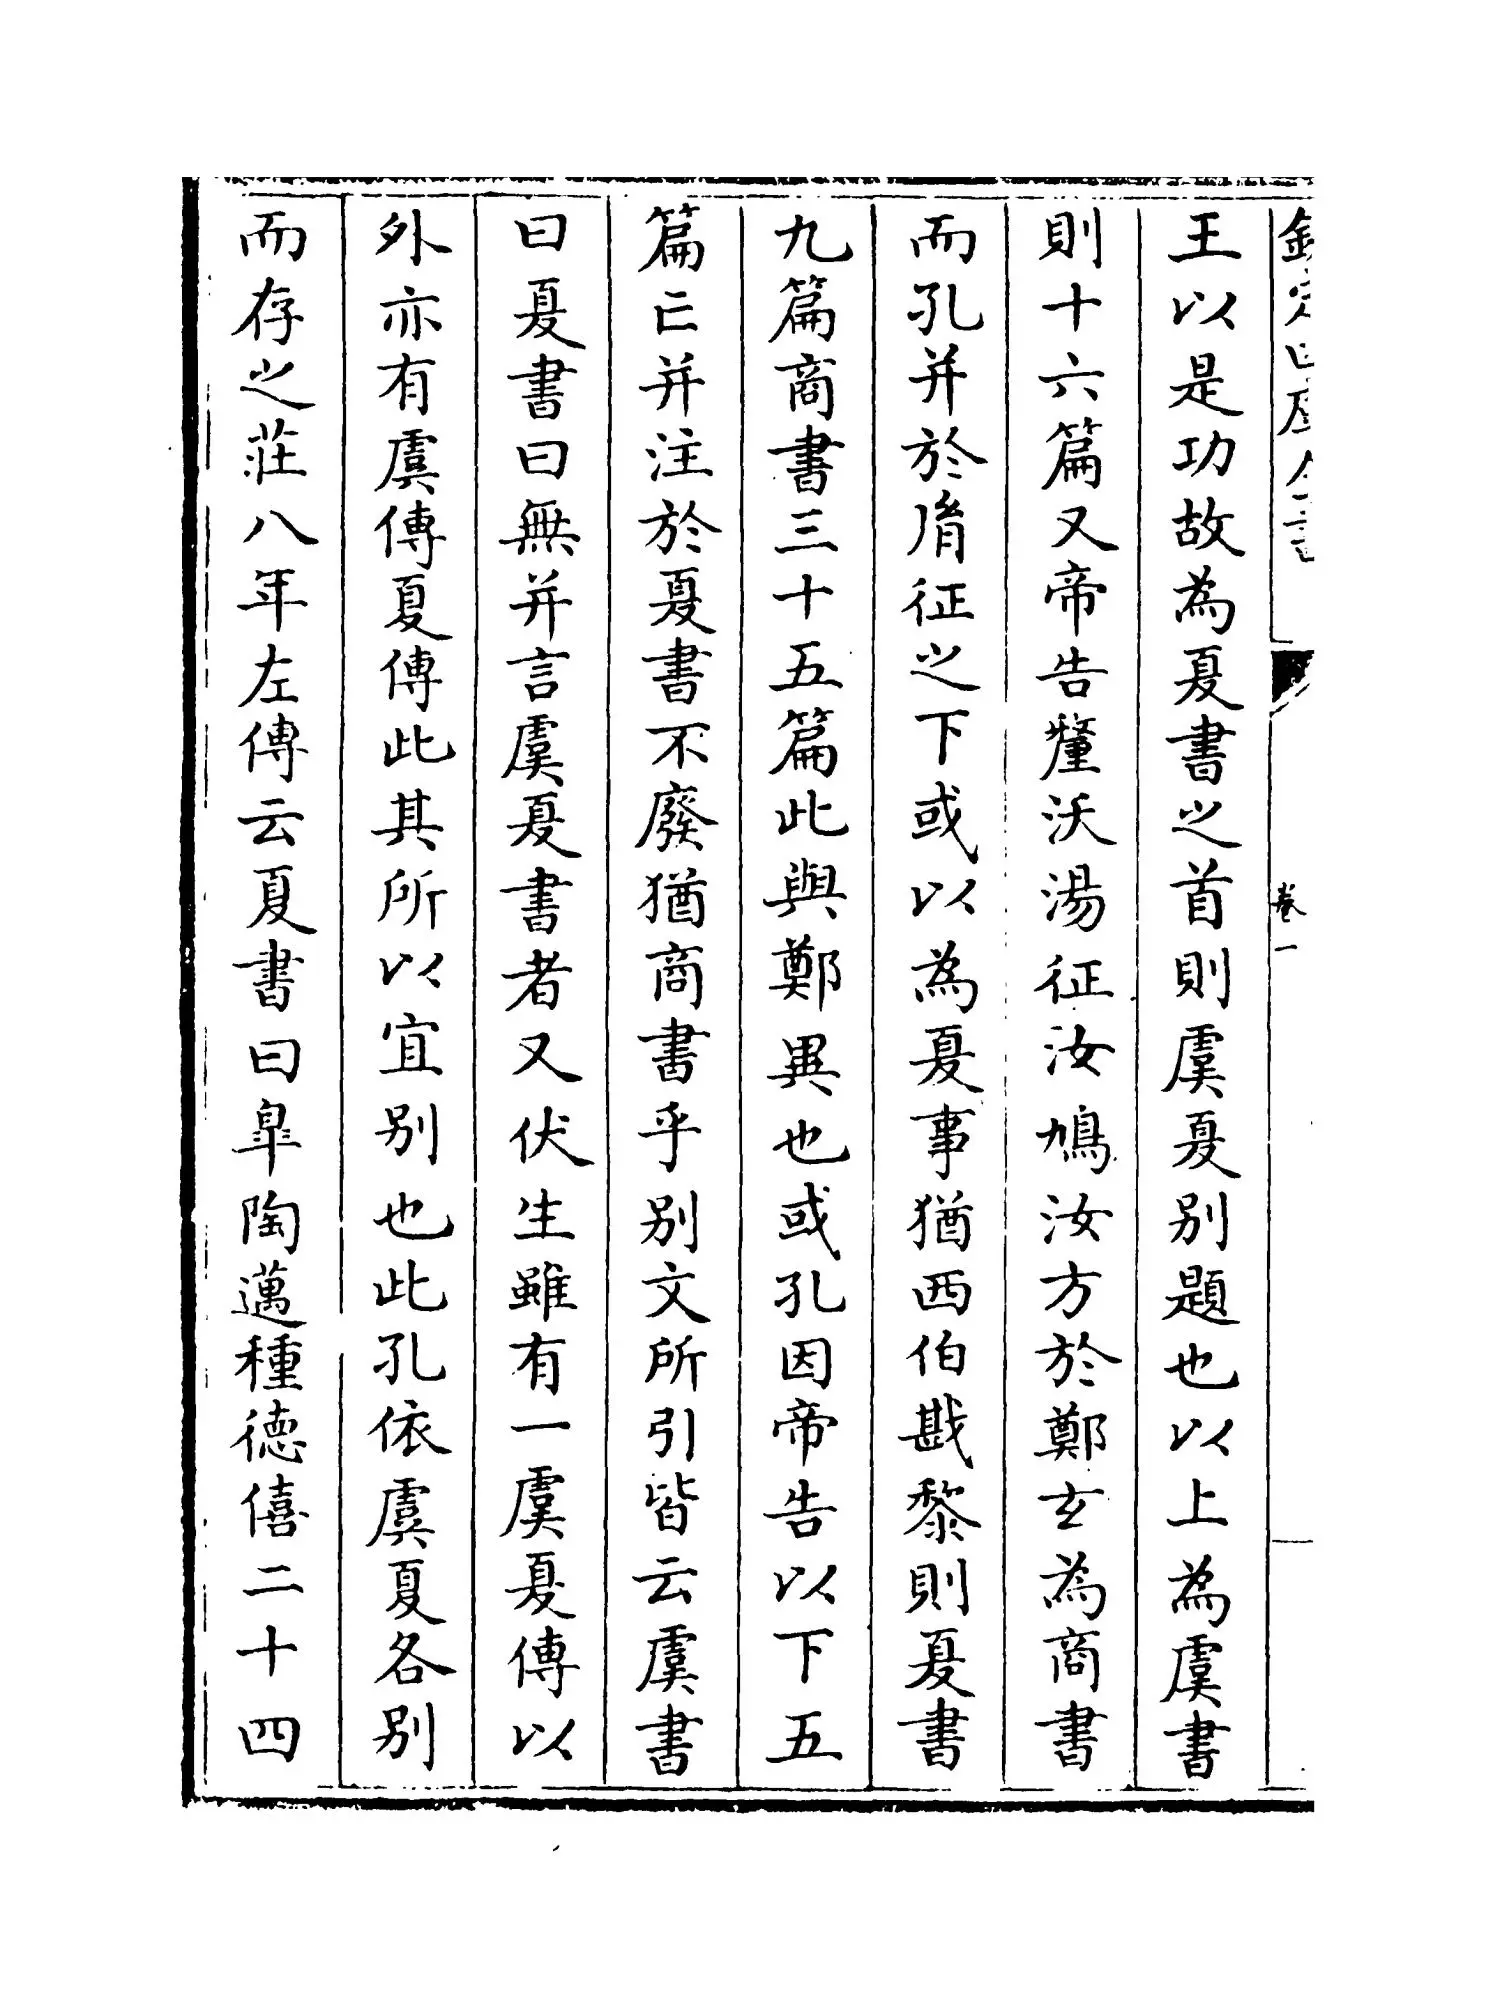 欽定四庫全書
卷一
王以是功故為夏書之首則虞夏别題也以上為虞書
則十六篇又帝告釐沃湯征汝鳩汝方於鄭玄為商書
而孔并於胤征之下或以為夏事猶西伯戡黎則夏書
九篇商書三十五篇此與鄭異也或孔因帝告以下五
篇亡并注於夏書不廢猶商書乎别文所引皆云虞書
曰夏書曰無并言虞夏書者又伏生雖有一虞夏傳以
外亦有虞傳夏傳此其所以宜别也此孔依虞夏各别
而存之莊八年左傳云夏書曰臯陶邁種德僖二十四